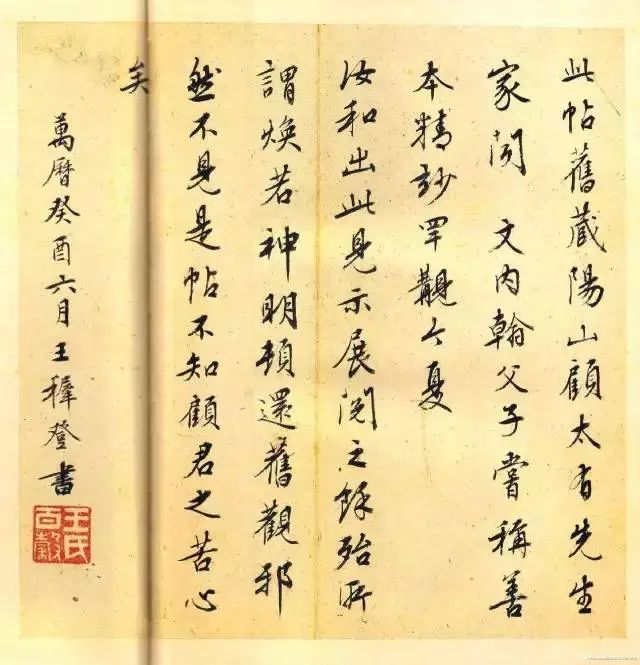 此帖舊藏陽山顧太有先生
家閱 文内翰父子嘗稱善
本精玅罕覯今夏
汝和出此見示展閱之餘殆所
謂煥若神明頓還舊觀邪
然不見是帖不知顧君之苦心
矣
萬曆癸酉六月王穉登書
王氏百穀